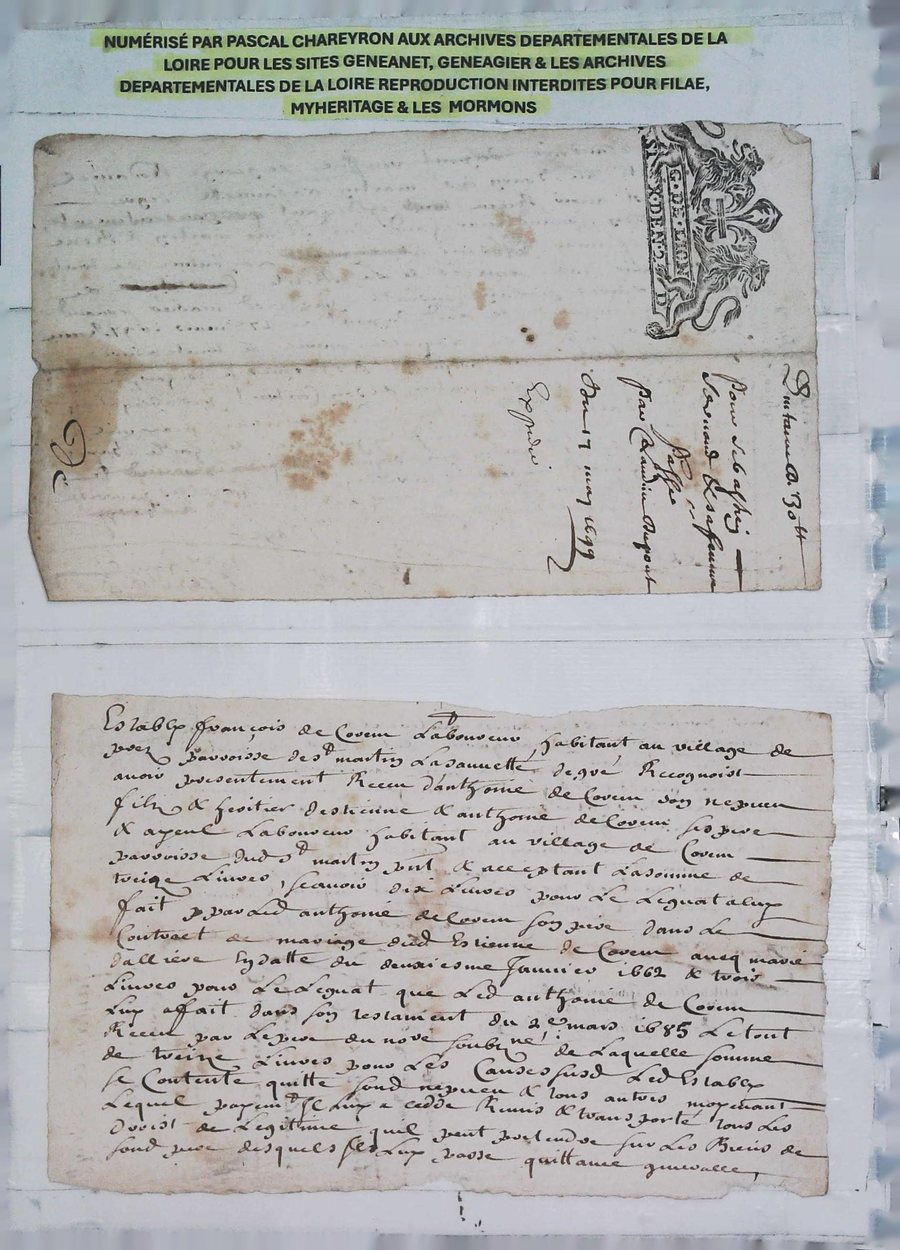 NUMÉRISÉ PAR PASCAL CHAREYRON AUX ARCHIVES DEPARTEMENTALES DE LA
LOIRE POUR LES SITES GENEANET, GENEAGIER & LES ARCHIVES
DEPARTEMENTALES DE LA LOIRE REPRODUCTION INTERDITES POUR FILAE,
MYHERITAGE & LES MORMONS
G·DE·LION
SI X·DEN·2 D
pour
& sa femme
passee
par Claudine Dupont
Du 17 may 1699
Expedié
Estably françois de Coveur Laboureur habitant au village de
parroisse de st martin Lasauvetté de gré Recognoist
avoir presentement Receu d'anthoine de Coveur son nepveu
filz & heritier d'estienne & anthoine de Coveur ses pere
& ayeul Laboureur habitant au village de Coveur
parroisse dud st martin pnt & acceptant La somme de
treize Livres, scavoir dix Livres pour Le Leguat a luy
fait par Led anthoine de Coveur son pere dans Le
Contract de mariage dud Estienne de Coveur avecq marie
dalliere En datte du deuxiesme Janvier 1662 & trois
Livres pour Le Leguat que Led anthoine de Coveur
Luy a fait dans son testament du 2e mars 1685 Le tout
Receu par Le pere du no.re soubzne de Laquelle somme
de treize Livres pour Les Causes susd Led Estably
se Contente quitte sond nepveu & tous autres moyenant
Lequel payemt Il Luy a cedde Remis & transporte tous Les
Droist de Legitime quil peut pretendre sur Les Biens de
sond pere desquels Il Luy passe quittance generalle,